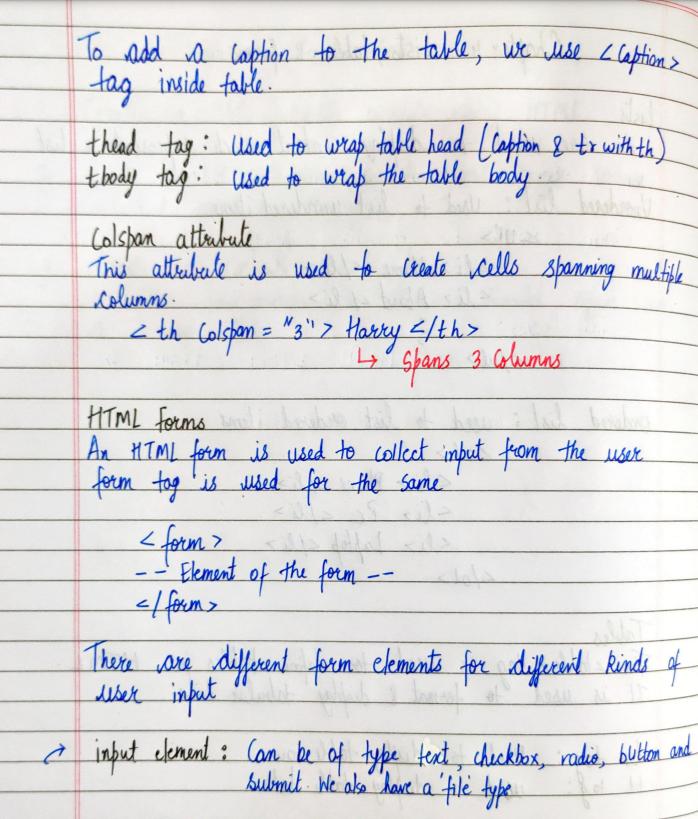 To add a Caption to the table, we use <Caption>
tag inside table.
thead tag : used to wrap table head (Caption & tr with th)
tbody tag : used to wrap the table body.
Colspan attribute
This attribute is used to create cells spanning multiple
columns.
<th Colspan = "3"> Harry </th>
↳ Spans 3 Columns
HTML forms
An HTML form is used to collect input from the user
form tag is used for the same
<form>
-- Element of the form --
</form>
There are different form elements for different kinds of
user input
→ input element : Can be of type text, checkbox, radio, button and
Submit. We also have a 'file' type